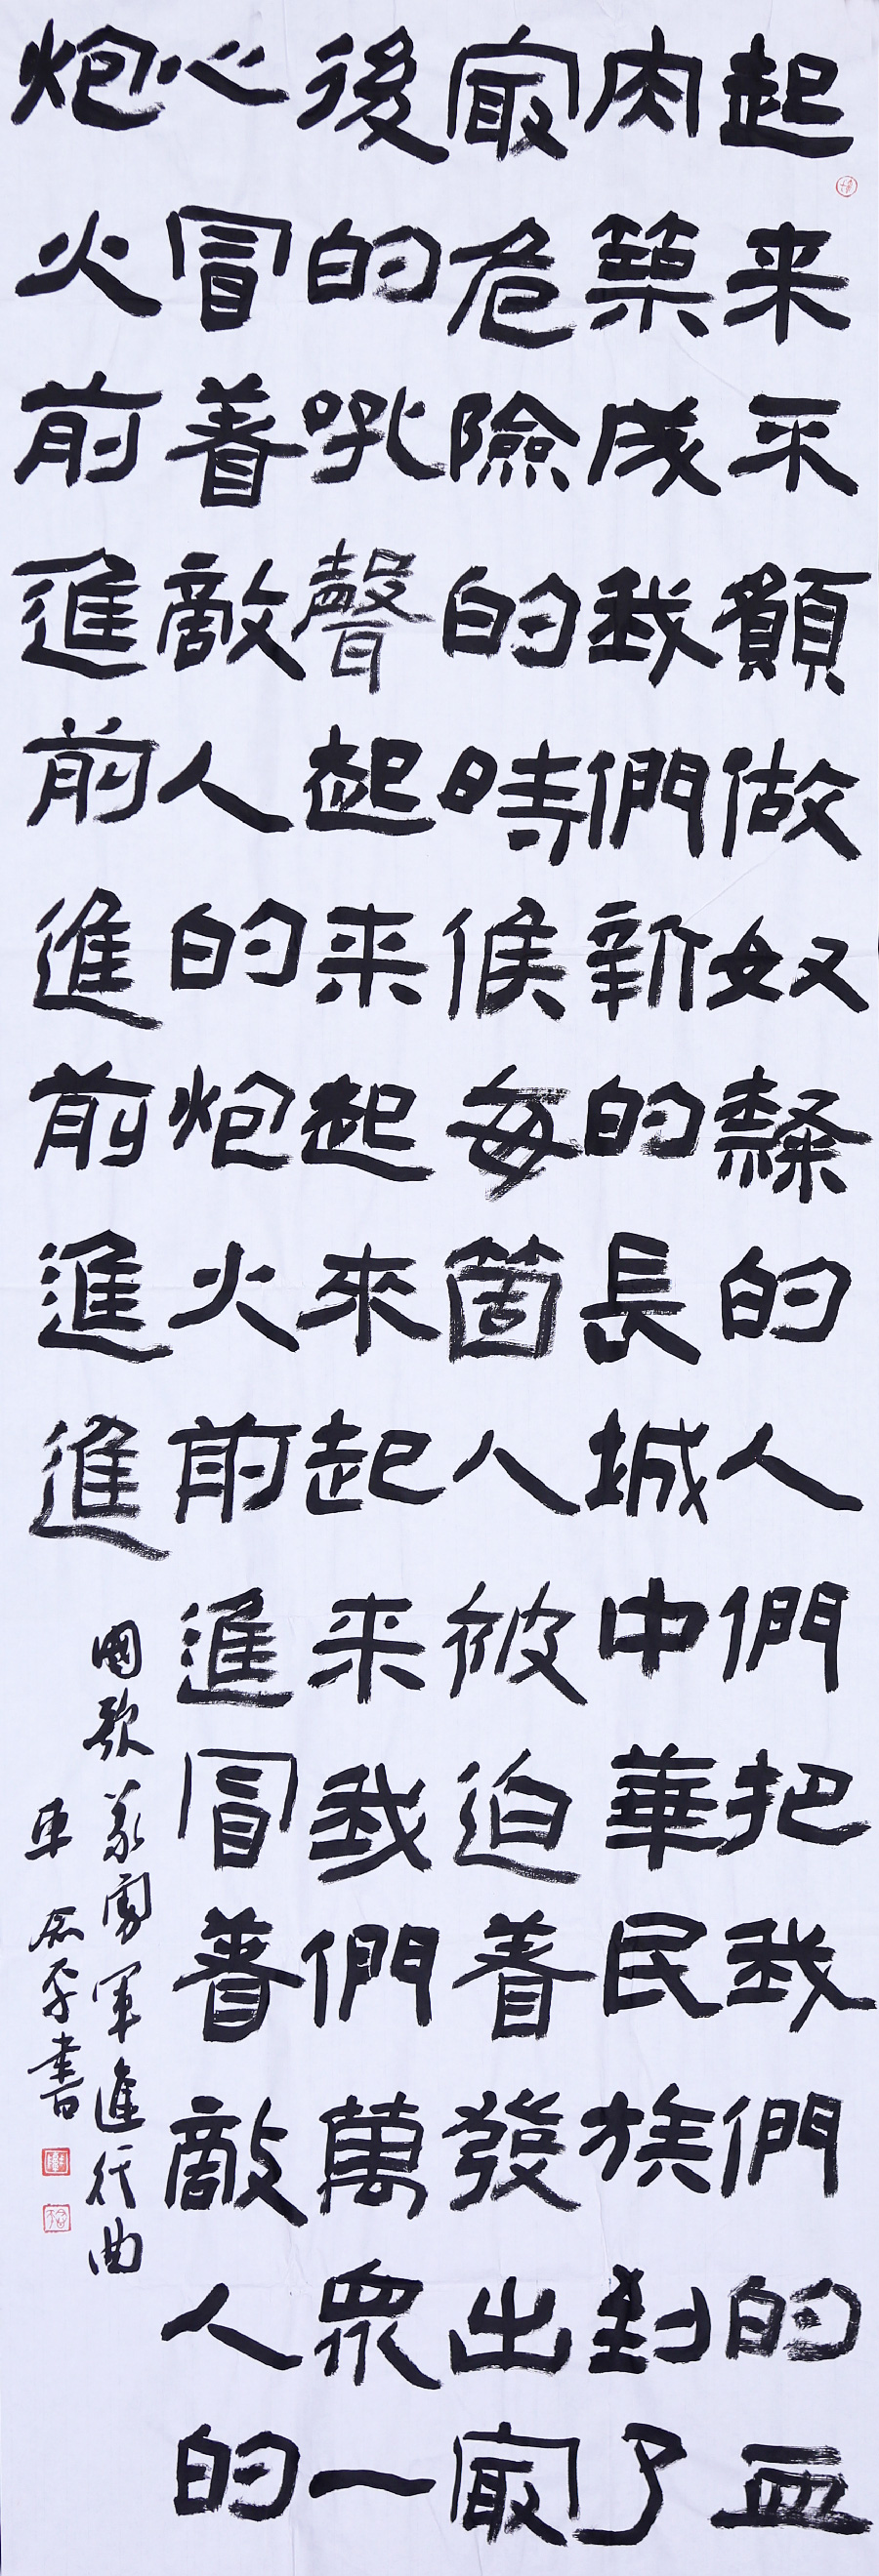 起来不願做奴隸的人們把我們的血
肉築成我們新的長城中華民族到了
最危險的時候每箇人被迫着發出最
後的吼聲起来起來起来我們萬眾一
心冒着敵人的炮火前進冒着敵人的
炮火前進前進前進進
國歌義勇軍進行曲
車 平書